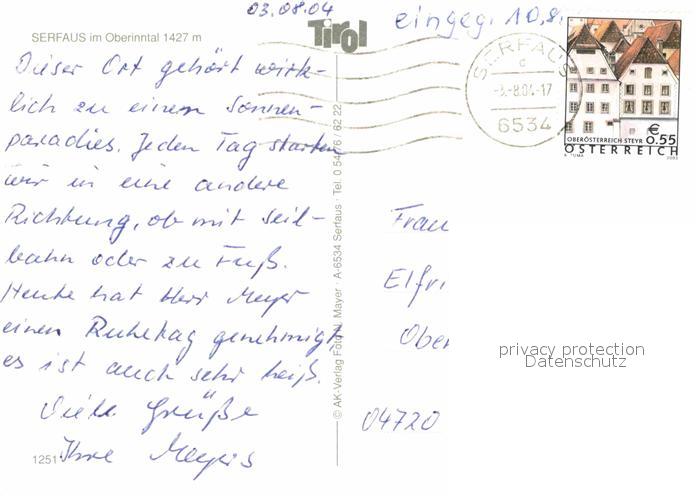 03.08.04
Tirol
eingeg. 10.8.
SERFAUS im Oberinntal 1427 m
SERFAUS
c
-3.-8.04.-17
6534
€
0.55
OBERÖSTERREICH STEYR
ÖSTERREICH
A. TUMA
2003
Dieser Ort gehört wirk-
lich zu einem Sonnen-
paradies. Jeden Tag starten
wir in eine andere
Richtung, ob mit Seil-
bahn oder zu Fuß.
Heute hat Herr Meyer
einen Ruhetag genehmigt,
es ist auch sehr heiß.
Viele Grüße
Ihre Meyers
1251
© AK-Verlag Foto Mayer · A-6534 Serfaus · Tel. 0 5476 / 62 22
Frau
Elfri
Ober
04720
privacy protection
Datenschutz